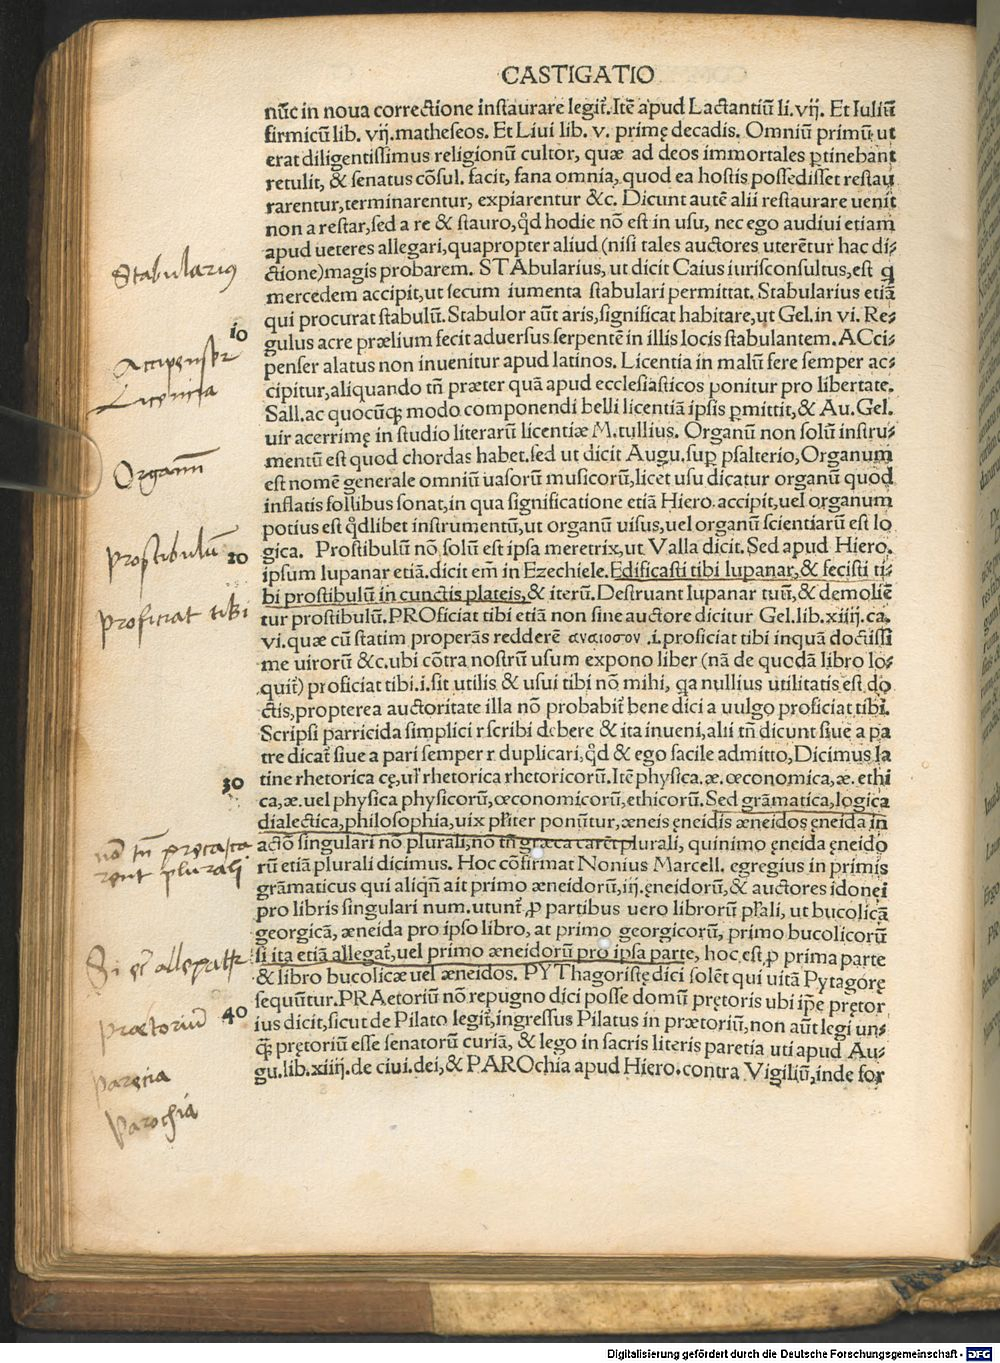 CASTIGATIO
nūc in noua correctione instaurare legit̄. Itē apud Lactantiū li. vij. Et Iuliū
firmicū lib. vij. matheseos. Et Liui lib. v. primę decadis. Omniū primū ut
erat diligentissimus religionū cultor, quæ ad deos immortales ꝑtinebant
retulit, & senatus cōsul. facit, fana omnia, quod ea hostis possedisset restau
rarentur, terminarentur, expiarentur &c. Dicunt autē alii restaurare uenit
non a restar, sed a re & stauro, qd̄ hodie nō est in usu, nec ego audiui etiam
apud ueteres allegari, quapropter aliud (nisi tales auctores uterētur hac di⸗
ctione) magis probarem. STAbularius, ut dicit Caius iurisconsultus, est q
mercedem accipit, ut secum iumenta stabulari permittat. Stabularius etiā
qui procurat stabulū. Stabulor aūt aris, significat habitare, ut Gel. in vi. Re⸗
gulus acre prælium fecit aduersus serpentē in illis locis stabulantem. ACci⸗
penser alatus non inuenitur apud latinos. Licentia in malū fere semper ac⸗
cipitur, aliquando tn̄ præter quā apud ecclesiasticos ponitur pro libertate.
Sall. ac quocūqꝫ modo componendi belli licentiā ipsis ꝑmittit, & Au. Gel.
uir acerrimę in studio literarū licentiæ M. tullius. Organū non solū instru⸗
mentū est quod chordas habet. sed ut dicit Augu. suꝑ psalterio, Organum
est nomē generale omniū uasorū musicorū, licet usu dicatur organū quod
inflatis follibus sonat, in qua significatione etiā Hiero. accipit, uel organum
potius est qd̄libet instrumentū, ut organū uisus, uel organū scientiarū est lo
gica. Prostibulū nō solū est ipsa meretrix, ut Valla dicit. Sed apud Hiero.
ipsum lupanar etiā. dicit em̄ in Ezechiele. Edificasti tibi lupanar, & fecisti ti⸗
bi prostibulū in cunctis plateis, & iterū. Destruant lupanar tuū, & demoliē
tur prostibulū. PROficiat tibi etiā non sine auctore dicitur Gel. lib. xiiij. ca.
vi. quæ cū statim properās redderē .i. proficiat tibi inquā doctissi
me uirorū &c. ubi cōtra nostrū usum expono liber (nā de quodā libro lo⸗
quit̄) proficiat tibi. i. sit utilis & usui tibi nō mihi, qa nullius utilitatis est do
ctis, propterea auctoritate illa nō probabit̄ bene dici a uulgo proficiat tibi.
Scripsi parricida simplici r scribi debere & ita inueni, alii tn̄ dicunt siue a pa
tre dicat̄ siue a pari semper r duplicari, qd̄ & ego facile admitto, Dicimus la
tine rhetorica cę, ul̄ rhetorica rhetoricorū. Itē physica. æ. œconomica, æ. ethi
ca, æ. uel physica physicorū, œconomicorū, ethicorū. Sed grāmatica, logica
dialectica, philosophia, uix pl̄iter ponūtur, æneis ęneidis æneidos ęneida in
actō singulari nō plurali, nō tn̄ græca carēt plurali, quinimo ęneida ęneido
rū etiā plurali dicimus. Hoc cōfirmat Nonius Marcell. egregius in primis
grāmaticus qui aliqn̄ ait primo æneidorū, iij. ęneidorū, & auctores idonei
pro libris singulari num. utunt̄, ꝓ partibus uero librorū pl̄ali, ut bucolicā
georgicā, æneida pro ipso libro, at primo georgicorū, primo bucolicorū
si ita etiā allegat̄, uel primo æneidorū pro ipsa parte, hoc est, ꝓ prima parte
& libro bucolicæ uel æneidos. PYThagoristę dici solēt qui uitā Pytagorę
sequūtur. PRAetoriū nō repugno dici posse domū pretoris ubi ip̄e prętor
ius dicit, sicut de Pilato legit̄, ingressus Pilatus in prætoriū, non aūt legi un⸗
q̄ꝫ pretoriū esse senatorū curiā, & lego in sacris literis paretia uti apud Au⸗
gu. lib. xiiij. de ciui. dei, & PAROchia apud Hiero. contra Vigiliū, inde for
Stabularius
10
Accipenser
Licencia
Organū
prostibulū
20
proficiat tibi
30
nō tn̄ preca
rent plurali
Si etiā allegatur
prætoriū
40
paręcia
Parochia
Digitalisierung gefördert durch die Deutsche Forschungsgemeinschaft - DFG